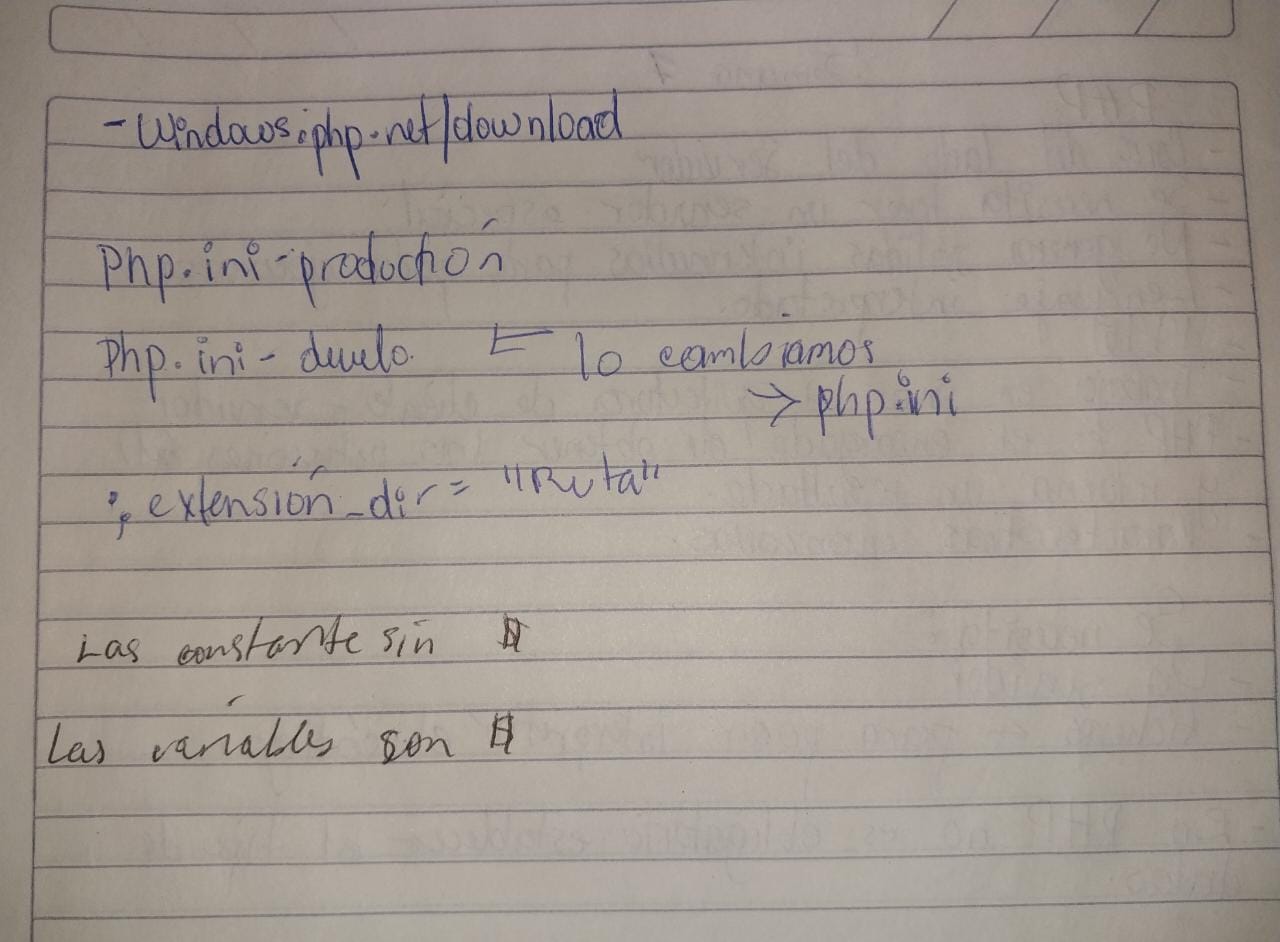 - Windows.php.net/download
Php.ini-producción
Php.ini - develo. ← lo cambiamos
→ php.ini
; extensión_dir = "Ruta"
Las constante sin $
Las variables son $